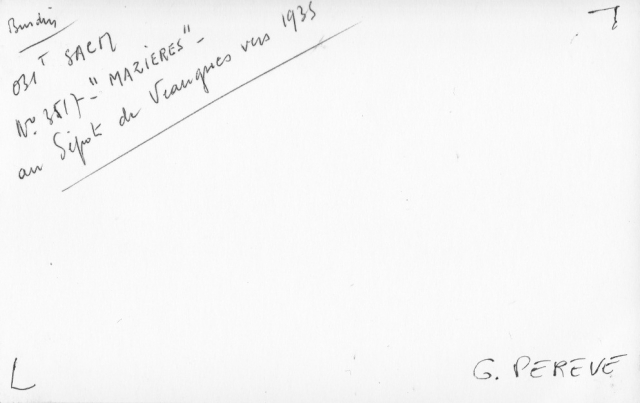 Burdin
031T SACM
No 3517 - "MAZIERES" -
au Dépôt de Veaugues vers 1935
G. PEREVE